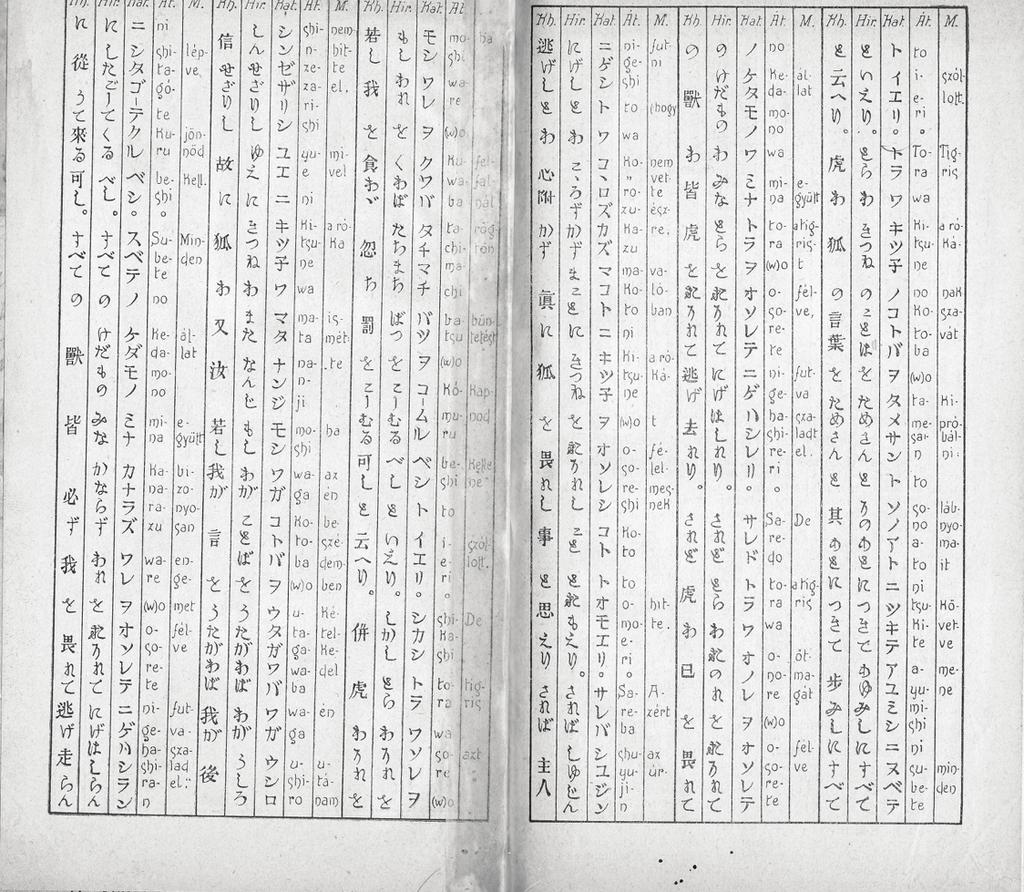 Ha fel- fal- nál rög- tön bün- tetést Kap- nod Kelle- ne" szól- lott. De tig- ris azt
Át. mo- shi wa- re (w)o Ku- wa- ba ta- chi- ma- chi ba- tsu (w)o Kō- mu- ru be- shi to i- e- ri. shi- Ka- shi to- ra wa so- re (w)o
Kat. モシ ワレ ヲ クワバ タチマチ バツ ヲ コームル ベシ ト イエリ。 シカシ トラ ワソレ ヲ
Hir. もし われ を くわば たちまち ばつ を こーむる べし と いえり。 しかし とら わそれ を
Kh. 若し 我 を 食わば 忽ち 罰 を こーむる 可し と 云へり。 併 虎 わそれ を
M. nem hit- te el, mi- vel a ró- Ka is- mét: te ha az én be- szé- dem- ben Ké- tel- Ke- del én u- tá- nam
Át. shi- n- ze- za- ri- shi yu- e ni Ki- tsu- ne wa ma- ta na- n- ji mo- shi wa- ga Ko- to- ba (w)o u- ta- ga- wa- ba wa- ga u- shi- ro
Kat. シンゼザリシ ユエ ニ キツ子 ワ マタ ナンジ モシ ワガ コトバ ヲ ウタガワバ ワガ ウシロ
Hir. しんせざりし ゆえ に きつね わ また なんじ もし わが ことば を うたがわば わが うしろ
Kh. 信せざりし 故 に 狐 わ 又 汝 若し 我が 言 を うたがわば 我が 後
M. lép- ve, jön- nöd Kell. Min- den ál- lat e- gyütt bi- zo- nyo- san en- ge- met fél- ve fut- va sza- lad el."
Át. ni shi- ta- gó- te Ku- ru be- shi. Su- be- te no Ke- da- mo- no mi- na Ka- na- ra- zu wa- re (w)o o- so- re- te ni- ge- ha- shi- ra- n
Kat. ニ シタゴーテクル ベシ。 スベテ ノ ケダモノ ミナ カナラズ ワレ ヲ オソレテ ニゲハシラン
Hir. に したごーてくる べし。 すべて の けだもの みな かならず われ を おそれて にげはしらん
Kh. に 從 うて 來る 可し。 すべて の 獸 皆 必ず 我 を 畏れて 逃げ 走らん
M. szól- lott. Tig- ris a ró- Ka- nak sza- vát Ki- pró- bál- ni: láb- nyo- ma- it Kö- vet- ve me- ne min- den
Át. to i- e- ri. To- ra wa Ki- tsu- ne no Ko- to- ba (w)o ta- me- sa- n to so- no a- to ni tsu- Ki- te a- yu- mi- shi ni su- be- te
Kat. ト イエリ。 トラ ワ キツ子 ノ コトバ ヲ タメサン ト ソノ アト ニ ツキテ アユミシ ニ スベテ
Hir. といえり。 とらわ きつね のことば をためさん と そのあと につきて あゆみし にすべて
Kh. と 云へり。 虎 わ 狐 の 言葉 を ためさん と 其 のあと につきて 歩みし にすべて
M. ál- lat e- gyütt a tig- ris- t fél- ve, fut- va sza- ladt el. De a tig- ris ön- ma- gát fél- ve
Át. no Ke- da- mo- no wa mi- na to- ra (w)o o- so- re- te ni- ge- ha- shi- re- ri. Sa- re- do to- ra wa o- no- re (w)o o- so- re- te
Kat. ノ ケタモノ ワ ミナ トラ ヲ オソレテ ニゲハシレリ。 サレド トラ ワ オノレ ヲ オソレテ
Hir. のけだもの わみな とら をおそれて にげはしれり。 されど とらわ おのれ を おそれて
Kh. の 獸 わ 皆 虎 を おそれて 逃げ 去れり。 されど 虎 わ 己 を 畏れて
M. fut- ni (hogy nem vet- te ész- re, va- ló- ban a ró- Ká- t fé- lel- mes- neK hit- te. A- zért az úr-
Át. ni- ge- shi to wa Ko- Ko- ro- zu- Ka- zu ma- Ko- to ni Ki- tsu- ne (w)o o- so- re- shi Ko- to to o- mo- e- ri. Sa- re- ba shu- yu- ji- n
Kat. ニゲシ ト ワ コヽロズカズ マコト ニ キツ子 ヲ オソレシ コト ト オモエリ。 サレバ シユジン
Hir. にげし と わ こゝろずかず まこと に きつね を おそれし こと と おもえり。 されば しゆじん
Kh. 逃げし と わ 心附 かず 眞 に 狐 を 畏れし 事 と 思えり されば 主人